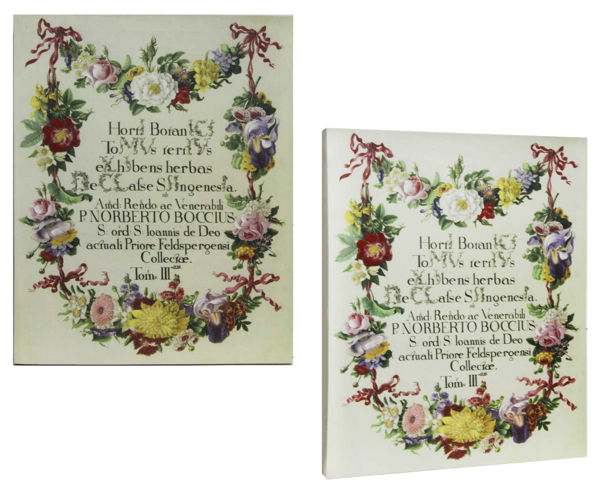 Horti Botanici
ToMVs terrtIVs
eXhIbens herbas
De CLaſse SIingenesIa.
Adđ Rendo ac Venerabili
P. NORBERTO BOCCIUS
S ord S Ioannis de Deo
actuali Priore Feldspergensi
Collectæ.
Tom. III
Horti Botanici
ToMVs terrtIVs
eXhIbens herbas
De CLaſse SIingenesIa.
Adđ Rendo ac Venerabili
P. NORBERTO BOCCIUS
S ord S Ioannis de Deo
actuali Priore Feldspergensi
Collectæ.
Tom. III